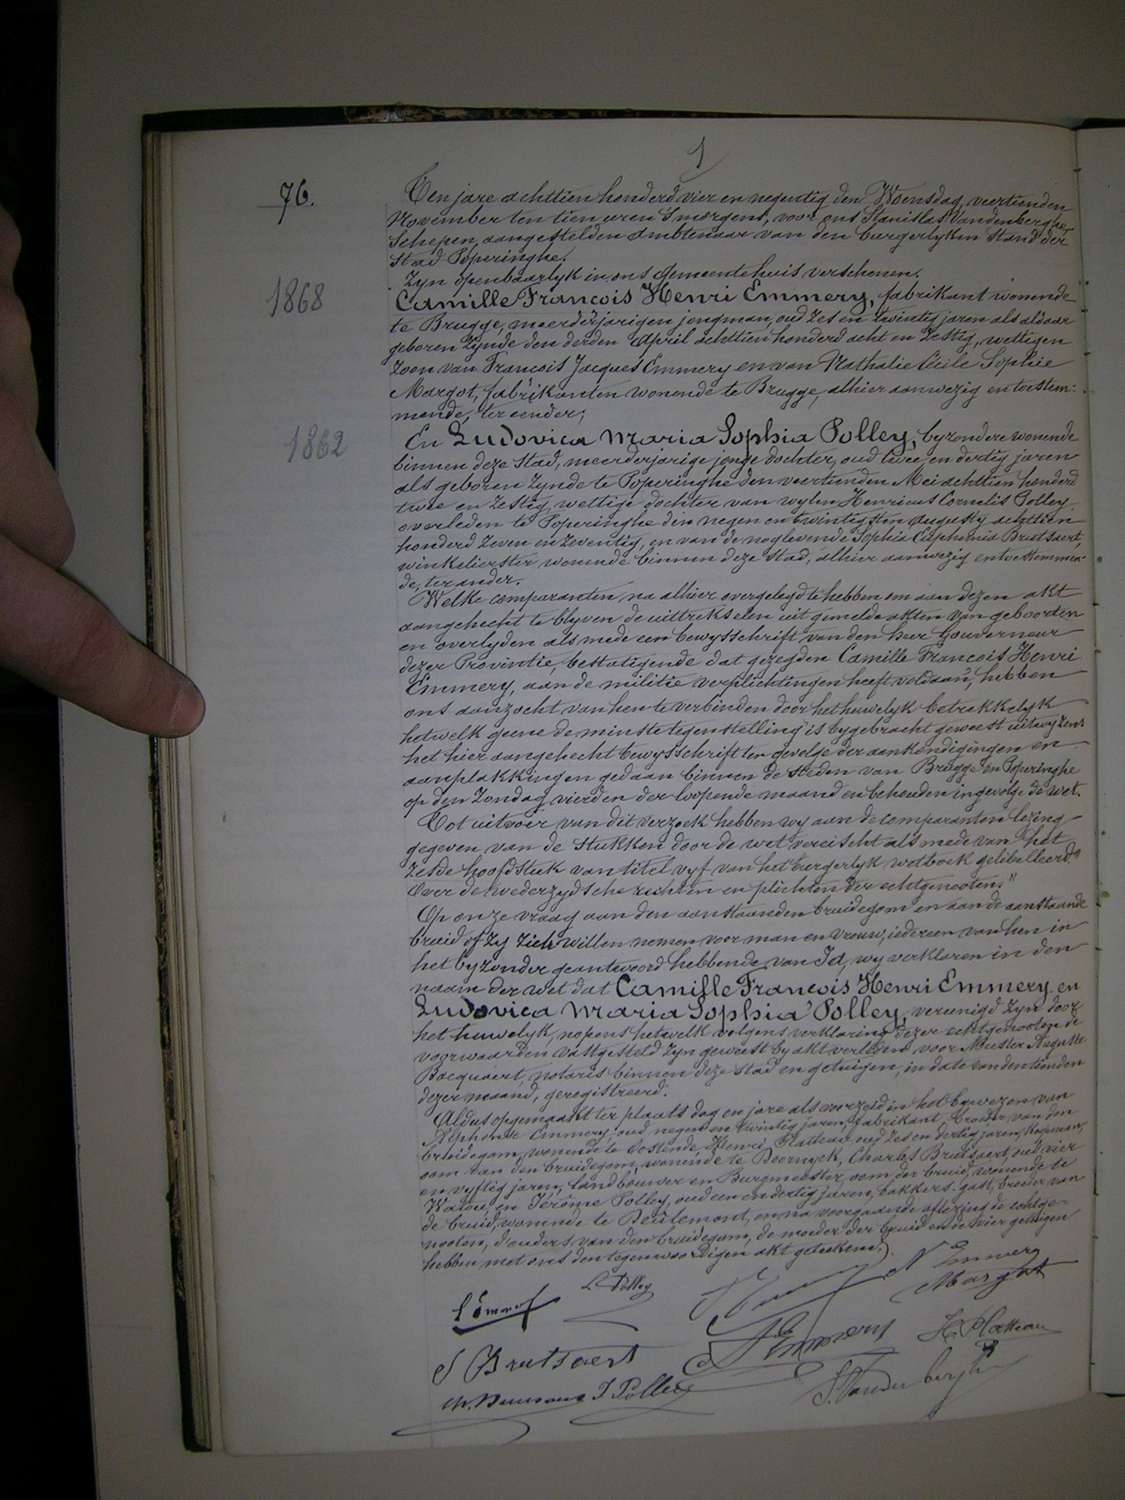 1
76.
Ten jare achttien honderd vier en negentig den Woensdag veertienden
November ten tien uren 's morgens, voor ons Stanislas Vandenberghe,
Schepen, aangestelden ambtenaar van den burgerlyken stand der
stad Poperinghe.
Zyn openbaarlyk in ons gemeentehuis verschenen.
1868
Camille Francois Henri Emmery, fabrikant wonende
te Brugge, meerderjarigen jongman, oud zes en twintig jaren als aldaar
geboren zynde den derden April achttien honderd acht en zestig, wettigen
zoon van Francois Jacques Emmery en van Nathalie Cécile Sophie
Margot, fabrikanten wonende te Brugge, alhier aanwezig en toestem:
mende, ter eender;
1862
En Ludovica Maria Sophia Polley, byzondere wonende
binnen deze stad, meerderjarige jonge dochter, oud twee en dertig jaren
als geboren zynde te Poperinghe den veertienden Mei achttien honderd
twee en zestig, wettige dochter van wylen Henricus Cornelis Polley
overleden te Poperinghe den negen en twintigsten Augusty achttien
honderd zeven en zeventig, en van de nog levende Sophia Euphemia Brutsaert,
winkelierster wonende binnen deze stad, alhier aanwezig en toestemmen-
de, ter ander.
Welke comparanten, na alhier overgelegd te hebben om aan dezen akt
aangehecht te blyven de uittrekselen uit gemelde akten van geboorten
en overlyden als mede een bewysschrift van den heer Gouverneur
dezer Provintie, bestatigende dat gezegden Camille Francois Henri
Emmery, aan de militie verplichtingen heeft voldaan, hebben
ons aanzocht van hen te verbinden door het huwelyk betrekkelyk
hetwelk geene de minste tegenstelling is bygebracht geweest uitwyzens
het hier aangehecht bewysschrift ten gevolge der aankondigingen en
aanplakkingen gedaan binnen de steden van Brugge en Poperinghe
op den Zondag vierden der loopende maand en behouden ingevolge de wet.
Tot uitvoer van dit verzoek hebben wy aan de comparanten lezing
gegeven van de stukken door de wet vereischt als mede van het
zesde hoofdstuk van titel vyf van het burgerlyk wetboek gelibelleerd "
Over de wederzydsche rechten en plichten der echtgenooten."
Op onze vraag aan den aanstaanden bruidegom en aan de aanstaande
bruid of zy zich willen nemen voor man en vrouw, iedereen van hen in
het byzonder geantwoord hebbende van Ja, wy verklaren in den
naam der wet dat Camille Francois Henri Emmery en
Ludovica Maria Sophia Polley, vereenigd zyn door
het huwelyk, nopens hetwelk volgens verklaring dezer echtgenooten de
voorwaarden vastgesteld zyn geweest by akt verleden voor Meester Auguste
Bocquaert, notaris binnen deze stad en getuigen, in date van den tienden
dezer maand, geregistreerd.
Aldus opgemaakt ter plaats dag en jare als voorzeid in het bywezen van
Alphonse Emmery, oud negen en twintig jaren, fabrikant, broeder van den
bruidegom, wonende te Oostende, Henri Platteau oud zes en dertig jaren, koopman,
oom van den bruidegom, wonende te Doornyck, Charles Brutsaert, oud vier
en vyftig jaren, landbouwer en Burgmeester, oom der bruid, wonende te
Watou, en Jérôme Polley, oud een en dertig jaren, bakkers-gast, broeder van
de bruid, wonende te Deulemont, en na voorgaande aflezing de echtge-
nooten, d'ouders van den bruidegom, de moeder der bruid en de vier getuigen
hebben met ons den tegenwoordigen akt geteekend.
L Polley
N Emmery
Margot
S Brutsaert
A Emmery
H. Platteau
J Polley
S. Vandenberghe